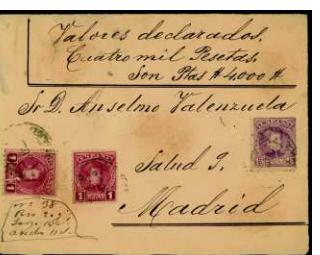 Valores declarados.
Cuatro mil Pesetas.
Son Ptas # 4000 #
Sr D. Anselmo Valenzuela
Salud 9.
Madrid
1
15